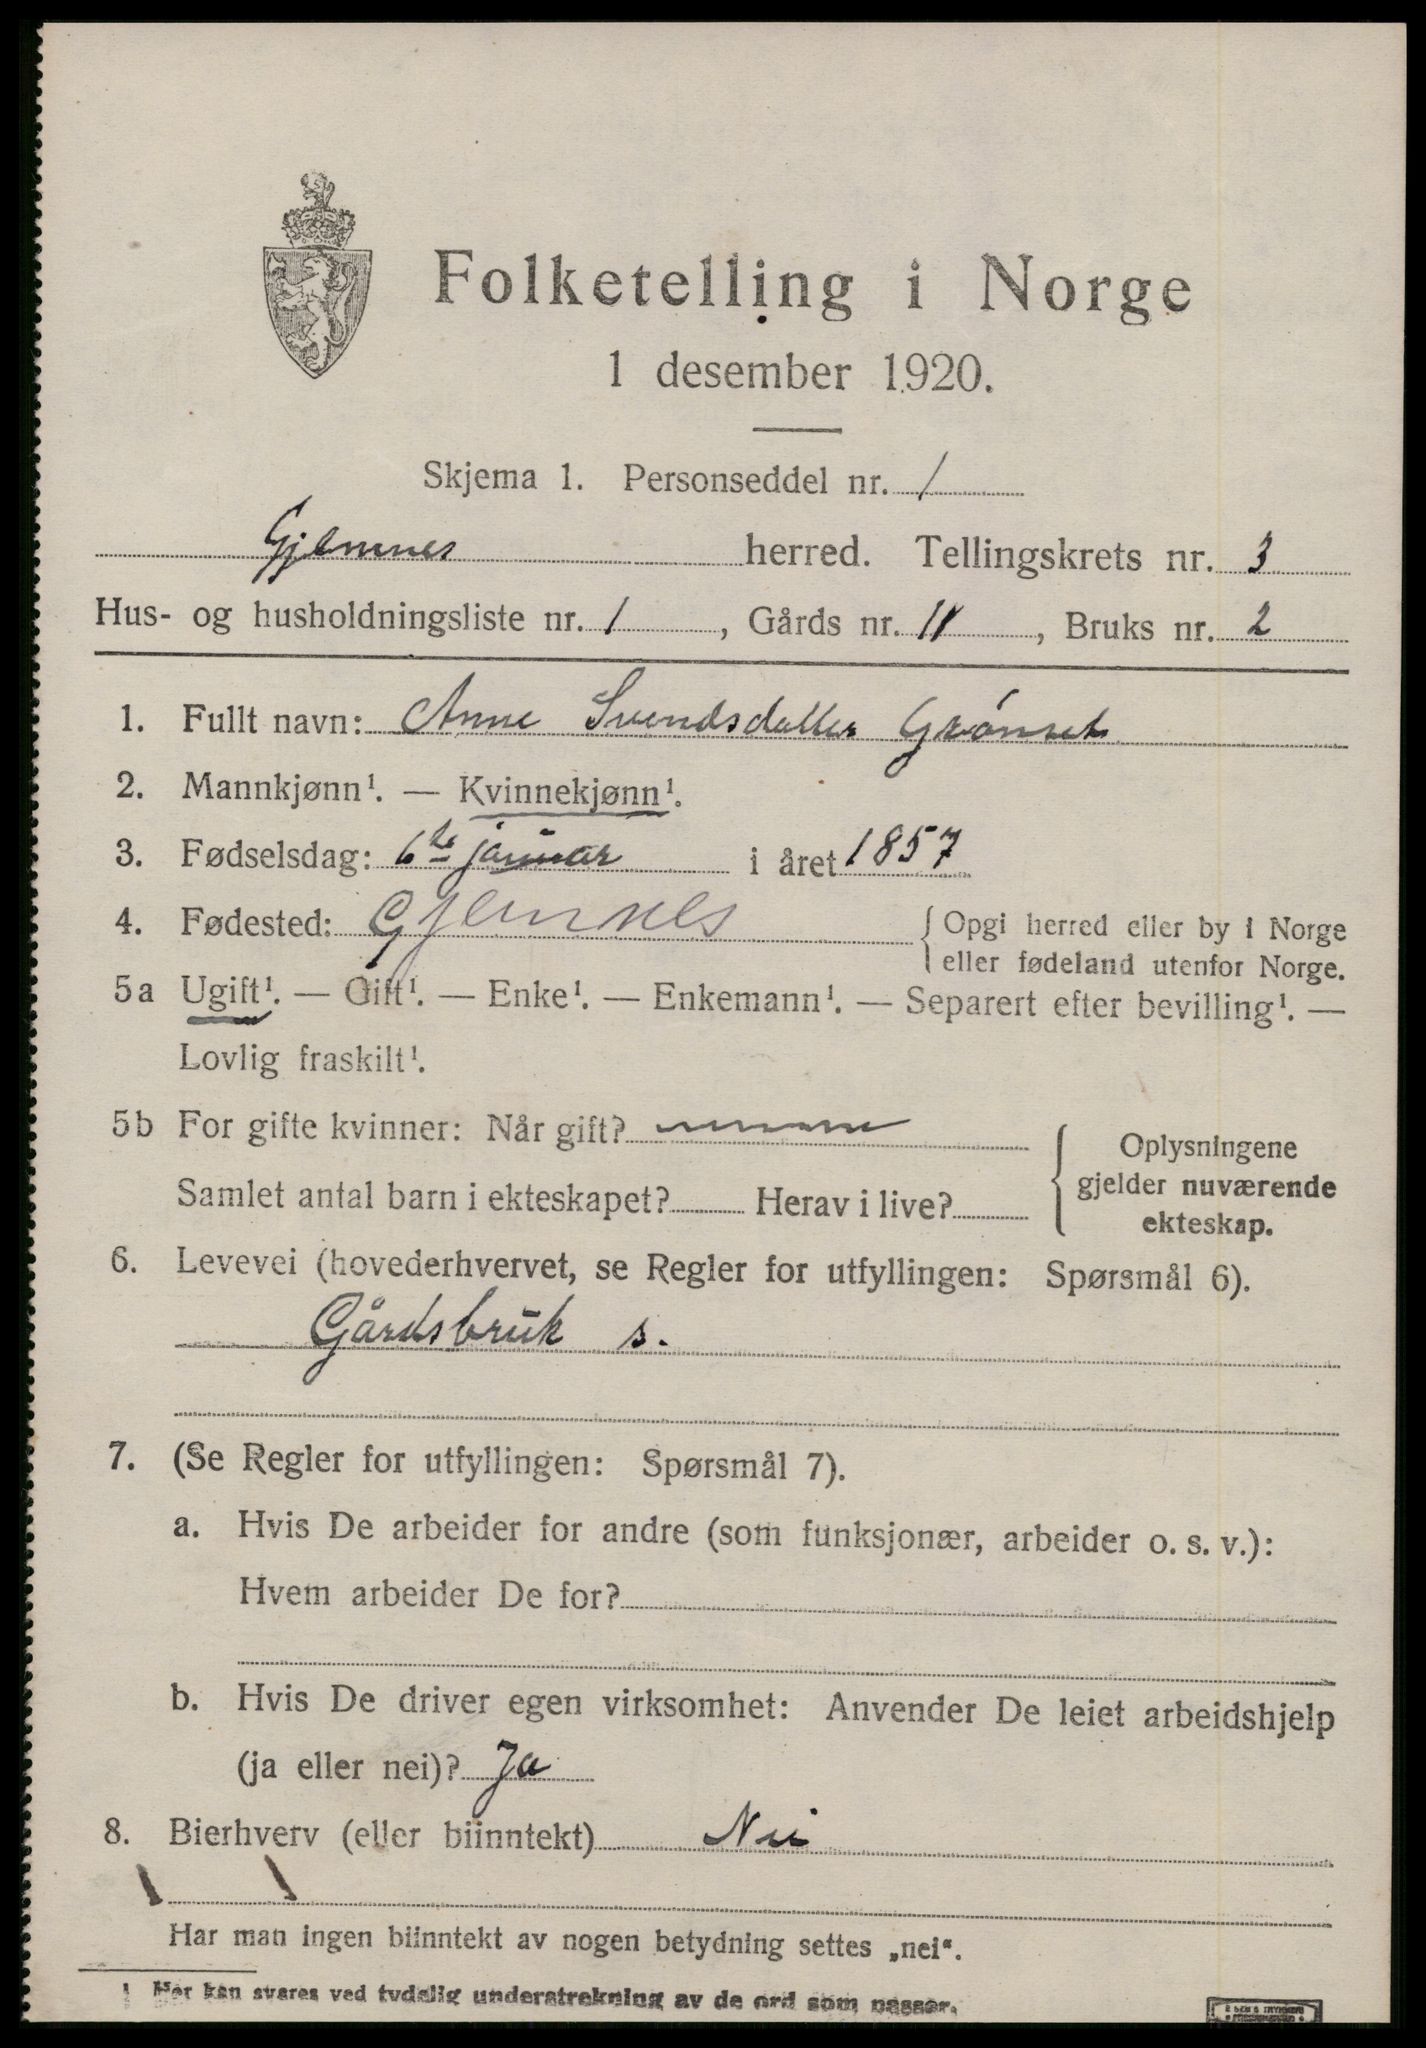 Folketelling i Norge
1 desember 1920.
Skjema 1. Personseddel nr. 1
Gjemnes herred. Tellingskrets nr. 3
Hus- og husholdningsliste nr. 1, Gårds nr. 11, Bruks nr. 2
1. Fullt navn: Anne Svendsdatter Grønset
2. Mannkjønn¹. — Kvinnekjønn¹.
3. Fødselsdag: 6te januar i året 1857
4. Fødested: Gjemnes {Opgi herred eller by i Norge
eller fødeland utenfor Norge.
5a Ugift¹. — Gift¹. — Enke¹. — Enkemann¹. — Separert efter bevilling¹. —
Lovlig fraskilt¹.
5b For gifte kvinner: Når gift?
Samlet antal barn i ekteskapet? Herav i live?
Oplysningene
gjelder nuværende
ekteskap.
6. Levevei (hovederhvervet, se Regler for utfyllingen: Spørsmål 6).
Gårdsbruk s.
7. (Se Regler for utfyllingen: Spørsmål 7).
a. Hvis De arbeider for andre (som funksjonær, arbeider o. s. v.):
Hvem arbeider De for?
b. Hvis De driver egen virksomhet: Anvender De leiet arbeidshjelp
(ja eller nei)? Ja
8. Bierhverv (eller biinntekt) Nei
Har man ingen biinntekt av nogen betydning settes „nei“.
1 Her kan svares ved tydelig understrekning av de ord som passer.